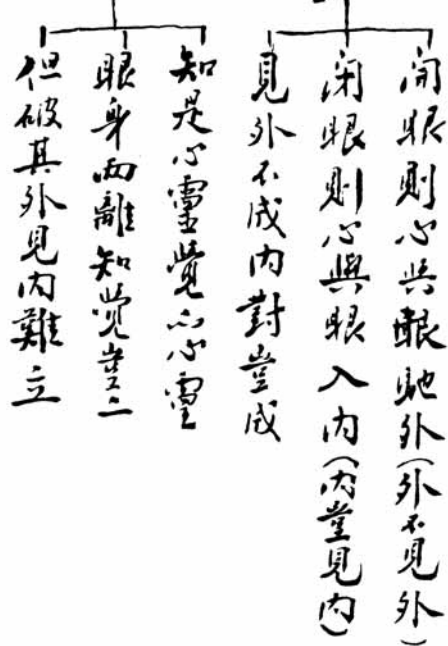 開眼則心與眼馳外(外不見外)
閉眼則心與眼入内(内豈見内)
見外不成内對豈成
知是心靈覺心靈
眼身兩離知覺豈二
但破其外見内難立